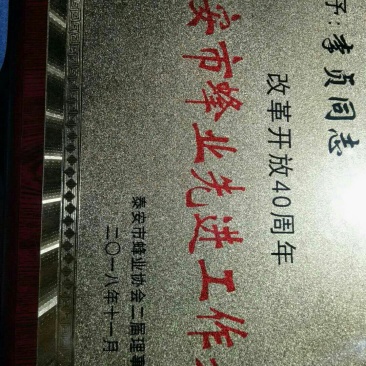 子:李贡同志
改革开放40周年
安市蜂业先进工作
泰安市蜂业协会二届理事
二〇一八年十一月